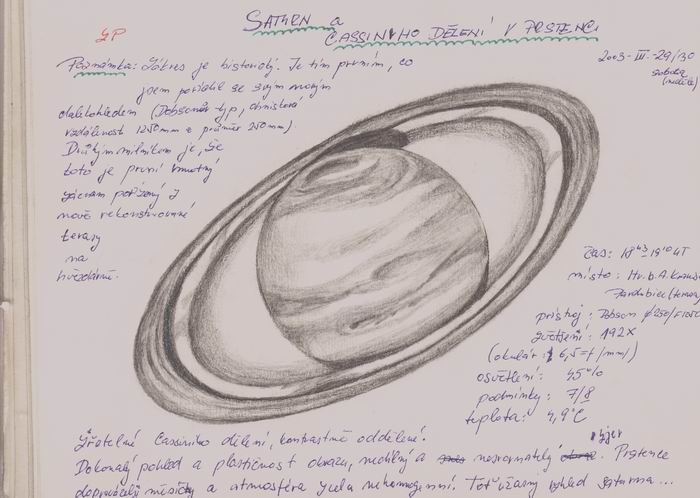 SATURN a
CASSINIHO DĚLENÍ V PRSTENCI
2003-III.-29/30
sobota
(neděle)
Poznámka: Zákres je historický. Je tím prvním, co
jsem pořídil se svým novým
dalekohledem (Dobsonův typ, ohnisková
vzdálenost 1250mm a průměr 250mm).
Druhým milníkem je, že
toto je první hmotný
záznam pořízený z
nově rekonstruované
terasy
na
hvězdárně.
Čas: 18 43 - 19 10 UT
místo: Hv. b. A. Kraus
Pardubice (terasa
přístroj: Dobson ø250/F1250
zvětšení: 192X
(okulár: 6,5=f/mm/)
osvětlení: 45%
podmínky: 7/8
teplota: 4,9°C
Zřetelné Cassiniho dělení, kontrastně oddělené.
Dokonalý pohled a plastičnost obrazu, nedílný a nesrovnatelný vjjer. Prstence
doprovázejí měsíčky a atmosféra zcela nehomogenní. Toť úžasný vzhled Saturna...